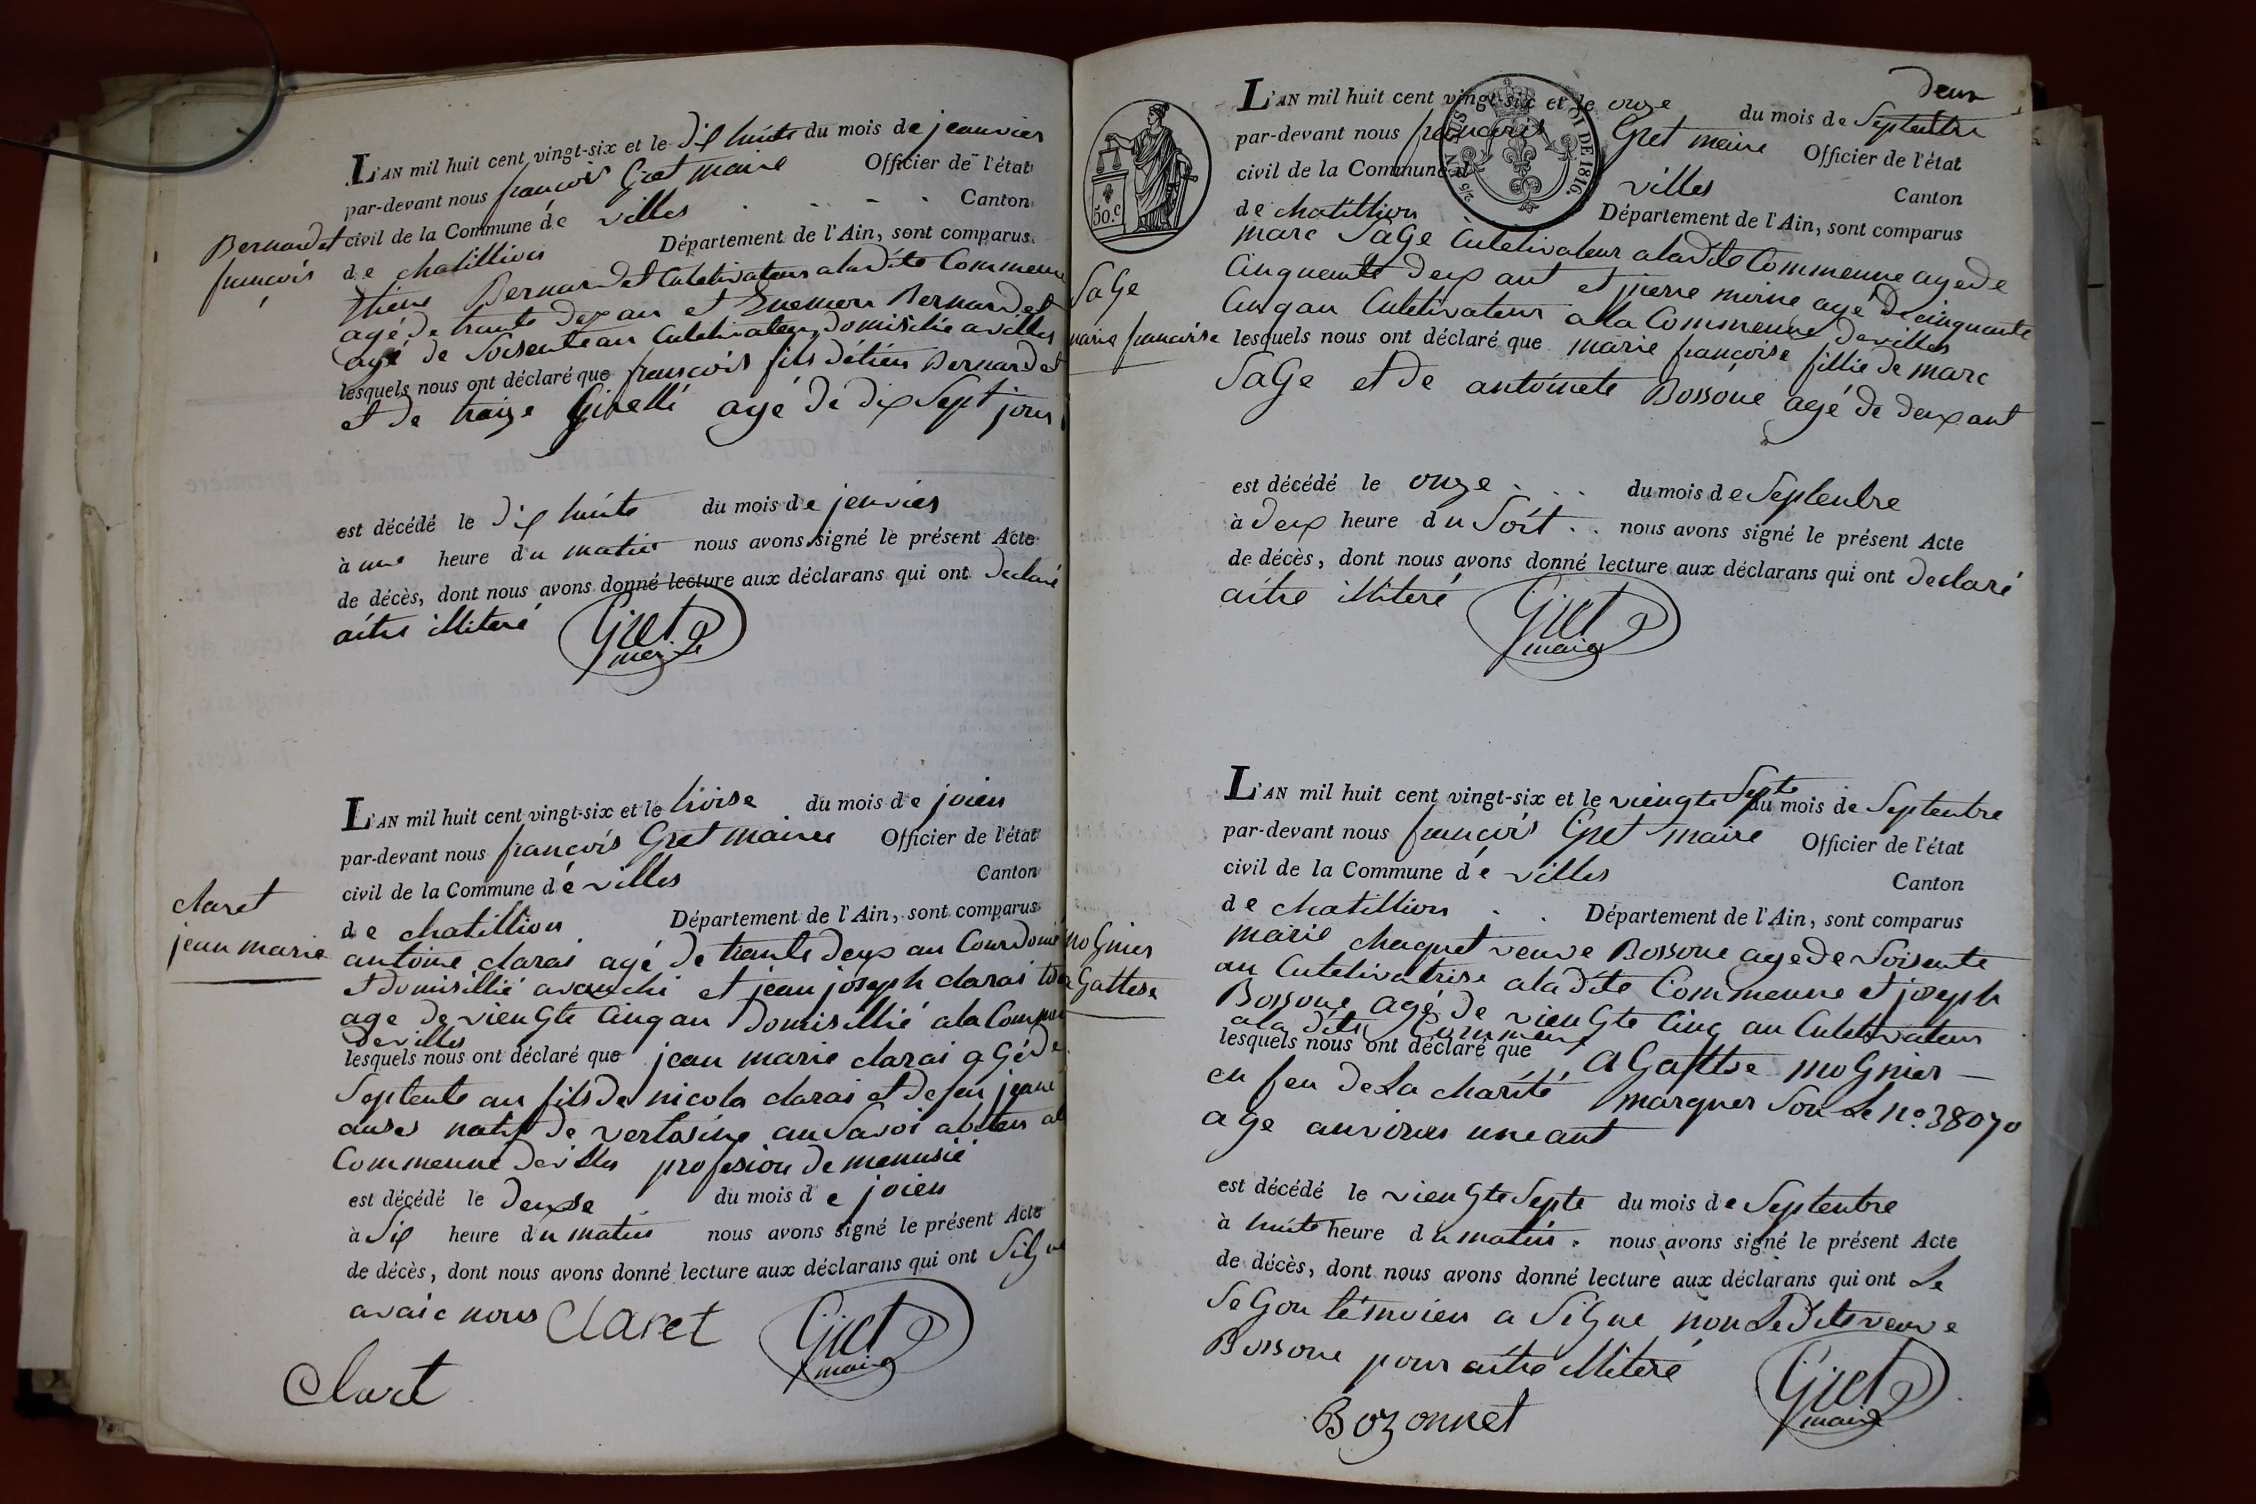 L'AN mil huit cent vingt-six et le dix huite du mois de jeanvier
par-devant nous françois Gret maire Officier de l'état
civil de la Commune de villes . - - . Canton
de chatillion Département de l'Ain, sont comparus
Bernardet
françois
Bernardet Cultivateur a la dite Commeune
agé de trante dex an et Enemon Bernardet
agé de Soisente an Cultivateur domisilié a villes
lesquels nous ont déclaré que françois fils d'étien Bernardet
et de Giretti agé de dix Sept jour
est décédé le dix huite du mois de jenvier
à une heure du matin nous avons signé le présent Acte
de décès, dont nous avons donné lecture aux déclarans qui ont declaré
aître illiteré Gret
maire
L'AN mil huit cent vingt-six et le troise du mois de joien
par-devant nous françois Gret maire Officier de l'état
civil de la Commune de villes Canton
de chatillion Département de l'Ain, sont comparus
claret
jean marie
antoine clarai agé de trante deux an Courdonié
et domisillié avouchi et jean joseph clarai
age de viengte Cinq an domisillié a la Commeune
de villes
lesquels nous ont déclaré que jean marie clarai agé de
Septente an fils de nicola clarai et de feu jeane
natif de vertosine an Savoi
Commeune de villes profesion de menusié
est décédé le deuxse du mois de joien
à Six heure du matin nous avons signé le présent Acte
de décès, dont nous avons donné lecture aux déclarans qui ont Signe
avaic nous Claret Gret
maire
Claret
deux
50.c
LOI DE 1816.
L'AN mil huit cent vingt-six et le onze du mois de Septentre
par-devant nous francois Gret maire Officier de l'état
civil de la Commune de villes Canton
de chatillion Département de l'Ain, sont comparus
SaGe
marie francoise
marc SaGe Cultivateur a la dite Commeune age de
Cinquente deux ant et pierre moine agé de cinquante
Cinq an Cultivateur a la Commeune de villes
lesquels nous ont déclaré que marie françoise fillie de marc
SaGe et de antoinete Bossone agé de deux ant
est décédé le onze . . . du mois de Septentre
à deux heure du Soit . . nous avons signé le présent Acte
de décès, dont nous avons donné lecture aux déclarans qui ont declaré
aitre illiteré Gret
maire
L'AN mil huit cent vingt-six et le viengte Septe du mois de Septentre
par-devant nous françois Gret maire Officier de l'état
civil de la Commune de villes Canton
de chatillion . . Département de l'Ain, sont comparus
moGnier
aGattese
marie chaquet veuve Bossone age de Soisente
an Cultivatrise a la dite Commeune et joseph
Bossone agé de viengte Cinq an Cultivateur
a la dite Commeune
lesquels nous ont déclaré que aGattse moGnier —
en feu de La charité marquer Son Le n° 38070
age anviron une ant
est décédé le viengte Septe du mois de Septentre
à huite heure du matin . nous avons signé le présent Acte
de décès, dont nous avons donné lecture aux déclarans qui ont Le
SeGon témoien a SiGne non Le dite veuve
Bossone pour aitre illiteré Gret
maire
Bozonnet